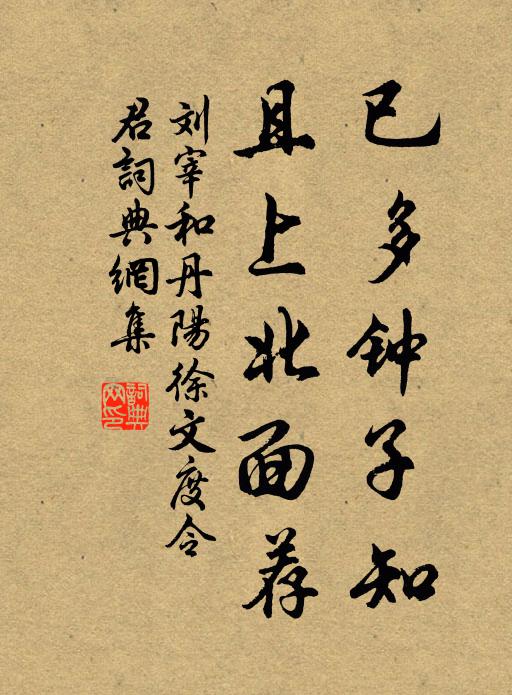 已多钟子知
且上北面荐
刘宰和丹陽徐文度令
君詞典網集
詞典網印